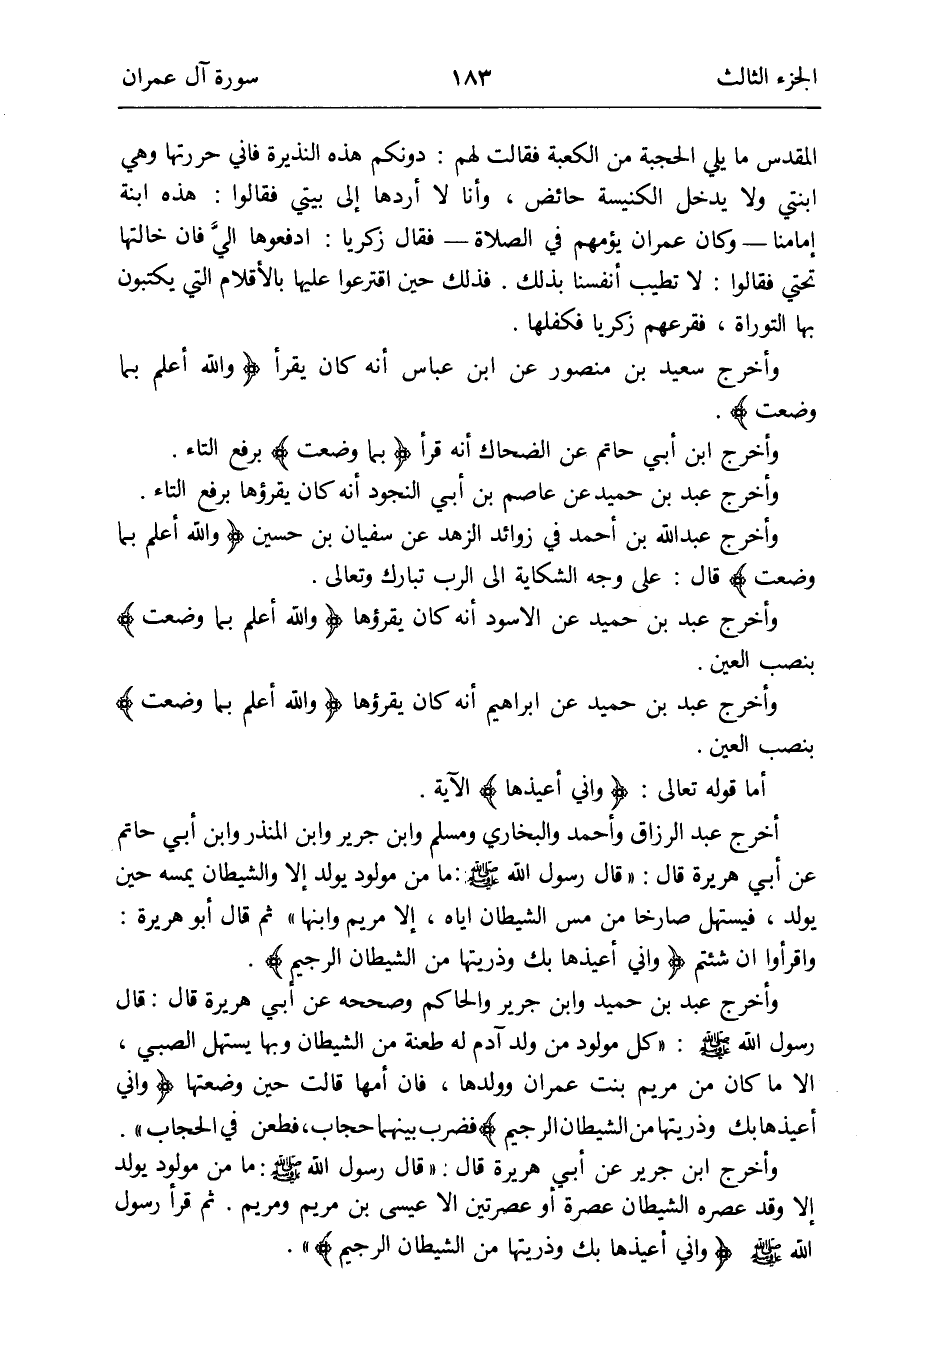 الجزء الثالث ١٨٣ سورة آل عمران
المقدس ما يلي الحجبة من الكعبة فقالت لهم : دونكم هذه النذيرة فاني حررتها وهي
ابنتي ولا يدخل الكنيسة حائض ، وأنا لا أردها إلى بيتي فقالوا : هذه ابنة
إمامنا — وكان عمران يؤمهم في الصلاة — فقال زكريا : ادفعوها اليَّ فان خالتها
تحتي فقالوا : لا تطيب أنفسنا بذلك . فذلك حين اقترعوا عليها بالأقلام التي يكتبون
بها التوراة ، فقرعهم زكريا فكفلها .
وأخرج سعيد بن منصور عن ابن عباس أنه كان يقرأ ﴿ والله أعلم بما
وضعت ﴾ .
وأخرج ابن أبي حاتم عن الضحاك أنه قرأ ﴿ بما وضعت ﴾ برفع التاء .
وأخرج عبد بن حميد عن عاصم بن أبي النجود أنه كان يقرؤها برفع التاء .
وأخرج عبدالله بن أحمد في زوائد الزهد عن سفيان بن حسين ﴿ والله أعلم بما
وضعت ﴾ قال : على وجه الشكاية الى الرب تبارك وتعالى .
وأخرج عبد بن حميد عن الاسود أنه كان يقرؤها ﴿ والله أعلم بما وضعت ﴾
بنصب العين .
وأخرج عبد بن حميد عن ابراهيم أنه كان يقرؤها ﴿ والله أعلم بما وضعت ﴾
بنصب العين .
أما قوله تعالى : ﴿ واني أعيذها ﴾ الآية .
أخرج عبد الرزاق وأحمد والبخاري ومسلم وابن جرير وابن المنذر وابن أبي حاتم
عن أبي هريرة قال : «قال رسول الله ﷺ : ما من مولود يولد إلا والشيطان يمسه حين
يولد ، فيستهل صارخا من مس الشيطان اياه ، إلا مريم وابنها» ثم قال أبو هريرة :
واقرأوا ان شئتم ﴿ واني أعيذها بك وذريتها من الشيطان الرجيم ﴾ .
وأخرج عبد بن حميد وابن جرير والحاكم وصححه عن أبي هريرة قال : قال
رسول الله ﷺ : «كل مولود من ولد آدم له طعنة من الشيطان وبها يستهل الصبي ،
الا ما كان من مريم بنت عمران وولدها ، فان أمها قالت حين وضعتها ﴿ واني
أعيذها بك وذريتها من الشيطان الرجيم ﴾ فضرب بينهما حجاب، فطعن في الحجاب» .
وأخرج ابن جرير عن أبي هريرة قال : «قال رسول الله ﷺ : ما من مولود يولد
إلا وقد عصره الشيطان عصرة أو عصرتين الا عيسى بن مريم ومريم . ثم قرأ رسول
الله ﷺ ﴿ واني أعيذها بك وذريتها من الشيطان الرجيم ﴾» .